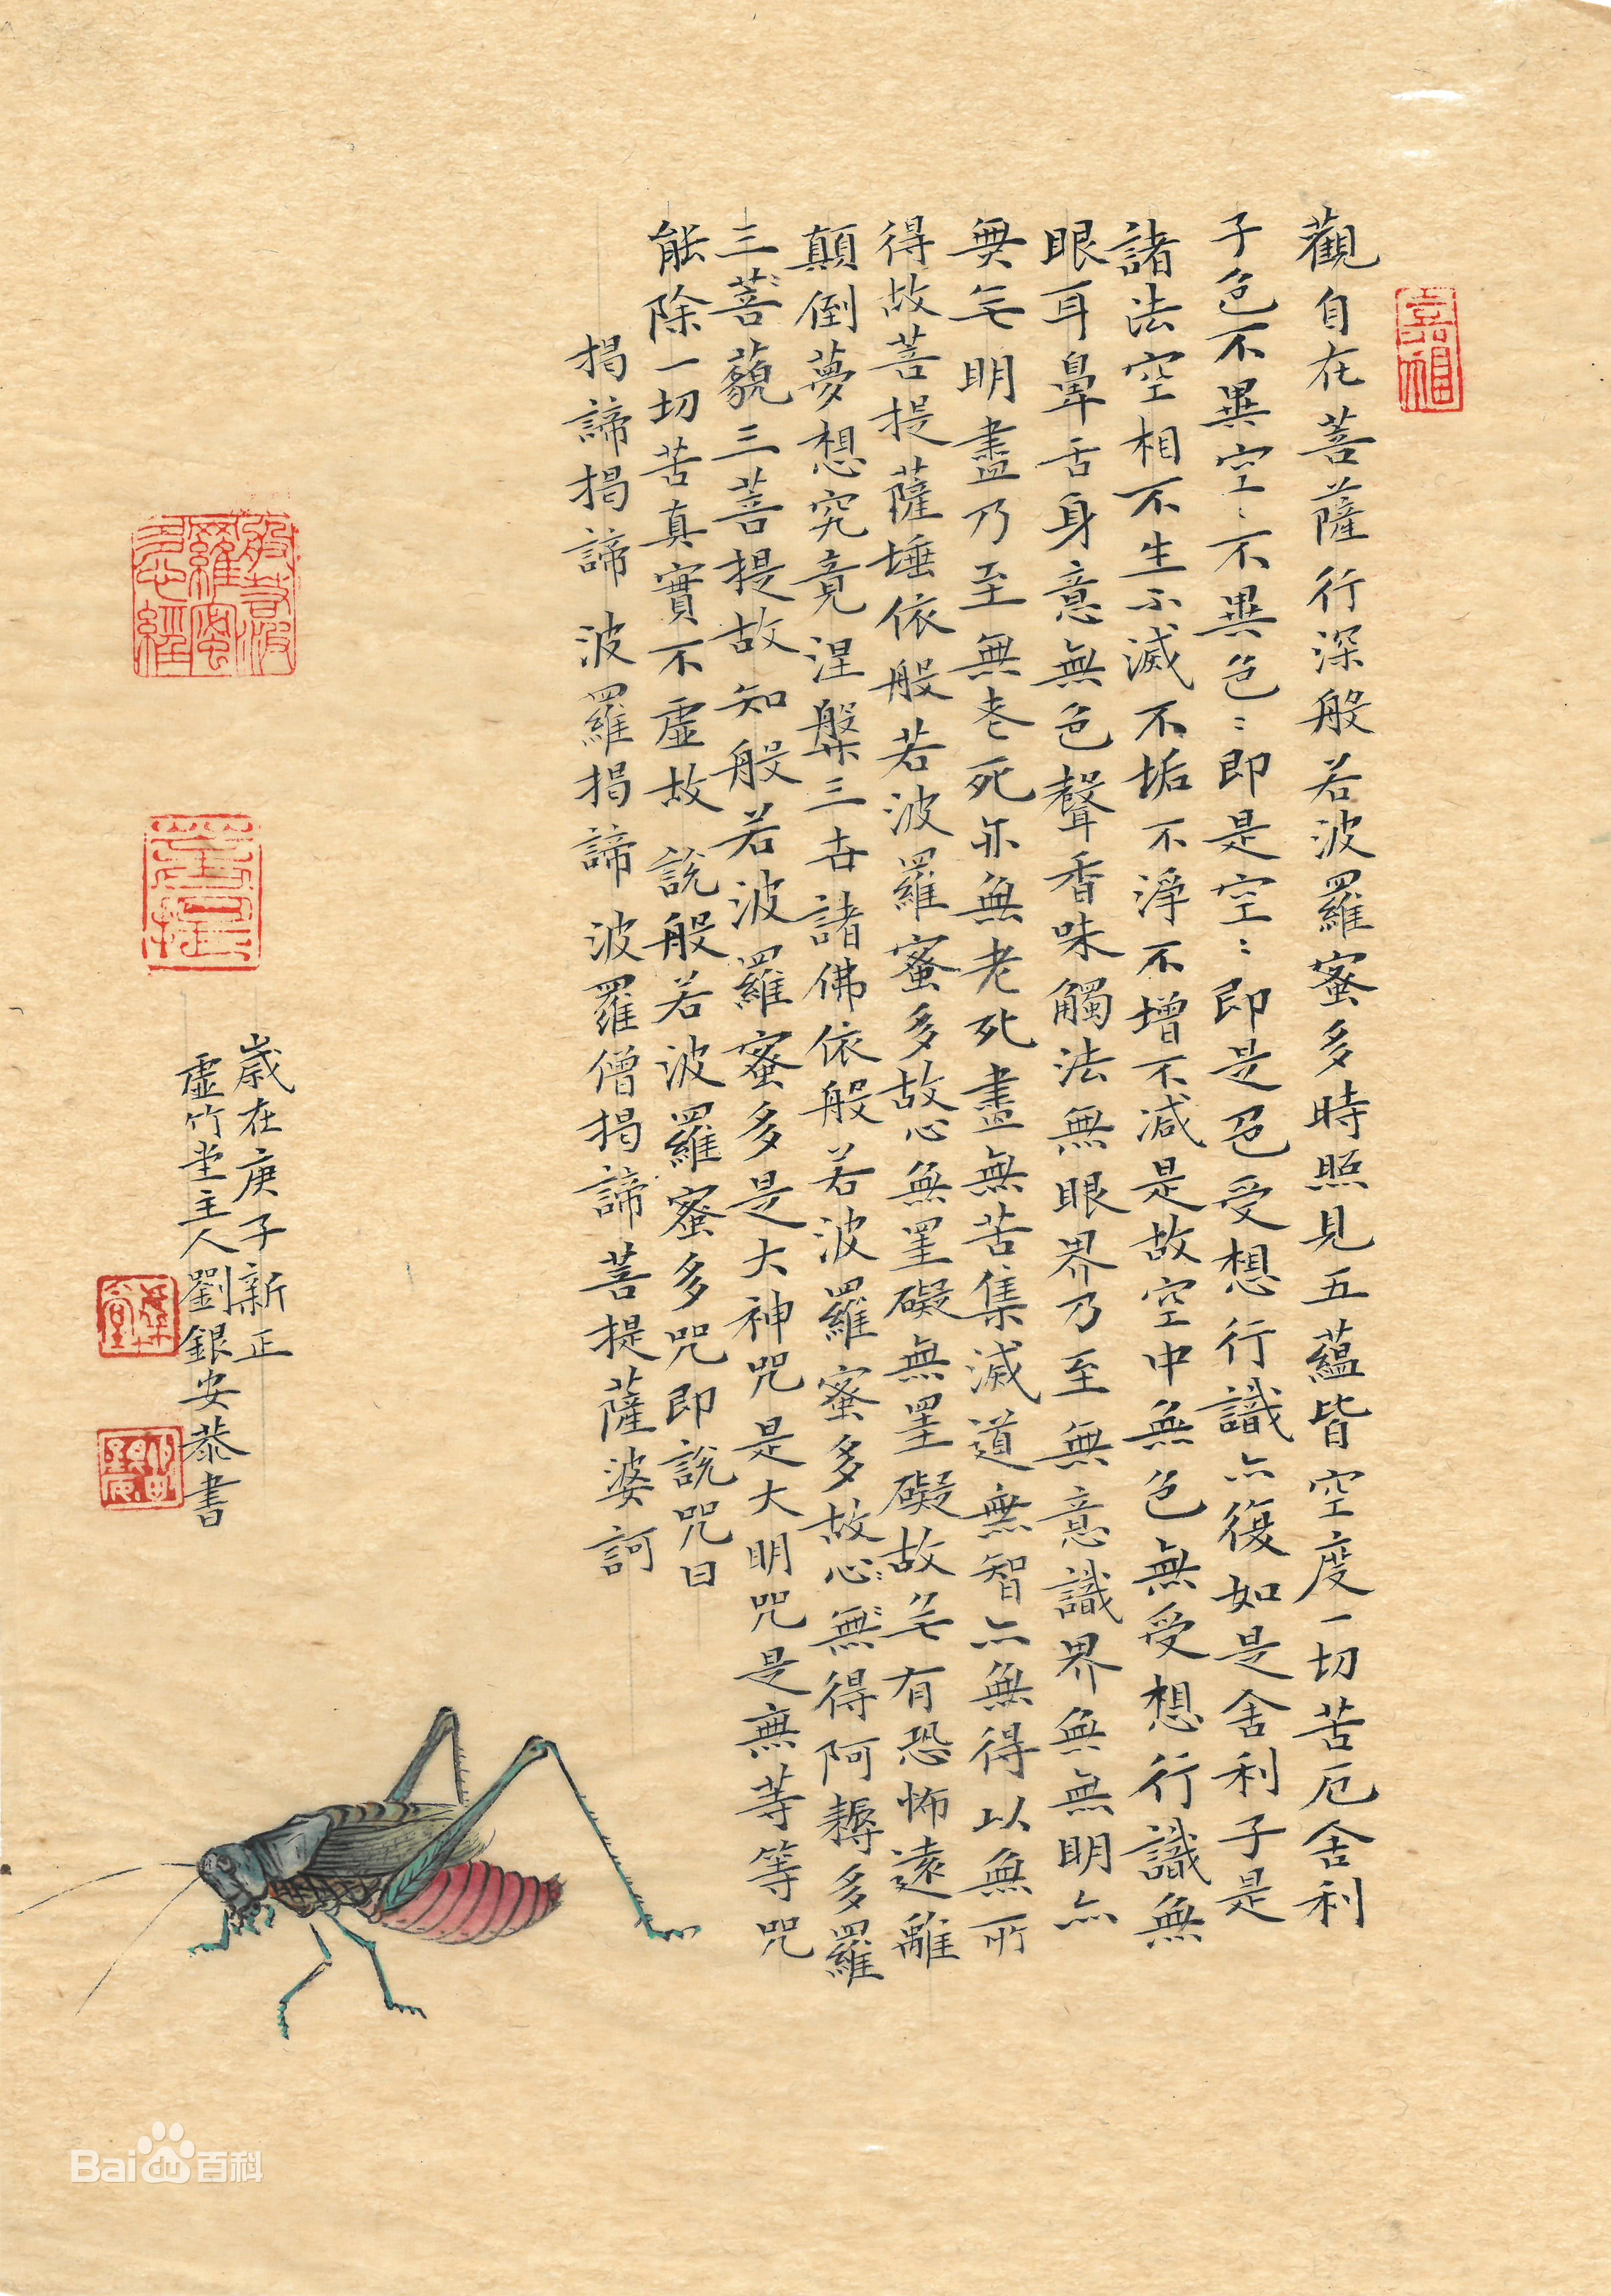 觀自在菩薩行深般若波羅蜜多時照見五蘊皆空度一切苦厄舍利
子色不異空〻不異色〻即是空〻即是色受想行識亦復如是舍利子是
諸法空相不生不滅不垢不淨不增不減是故空中無色無受想行識無
眼耳鼻舌身意無色聲香味觸法無眼界乃至無意識界無無明亦
無无明盡乃至無老死亦無老死盡無苦集滅道無智亦無得以無所
得故菩提薩埵依般若波羅蜜多故心無罣礙無罣礙故无有恐怖遠離
顛倒夢想究竟涅槃三世諸佛依般若波羅蜜多故心無得阿耨多羅
三菩藐三菩提故知般若波羅蜜多是大神咒是大明咒是無等等咒
能除一切苦真實不虛故說般若波羅蜜多咒即說咒曰
揭諦揭諦 波羅揭諦 波羅僧揭諦菩提薩婆訶
歲在庚子新正
虛竹堂主人劉銀安恭書
般若波
羅蜜
多心經
菩提
Bai百科